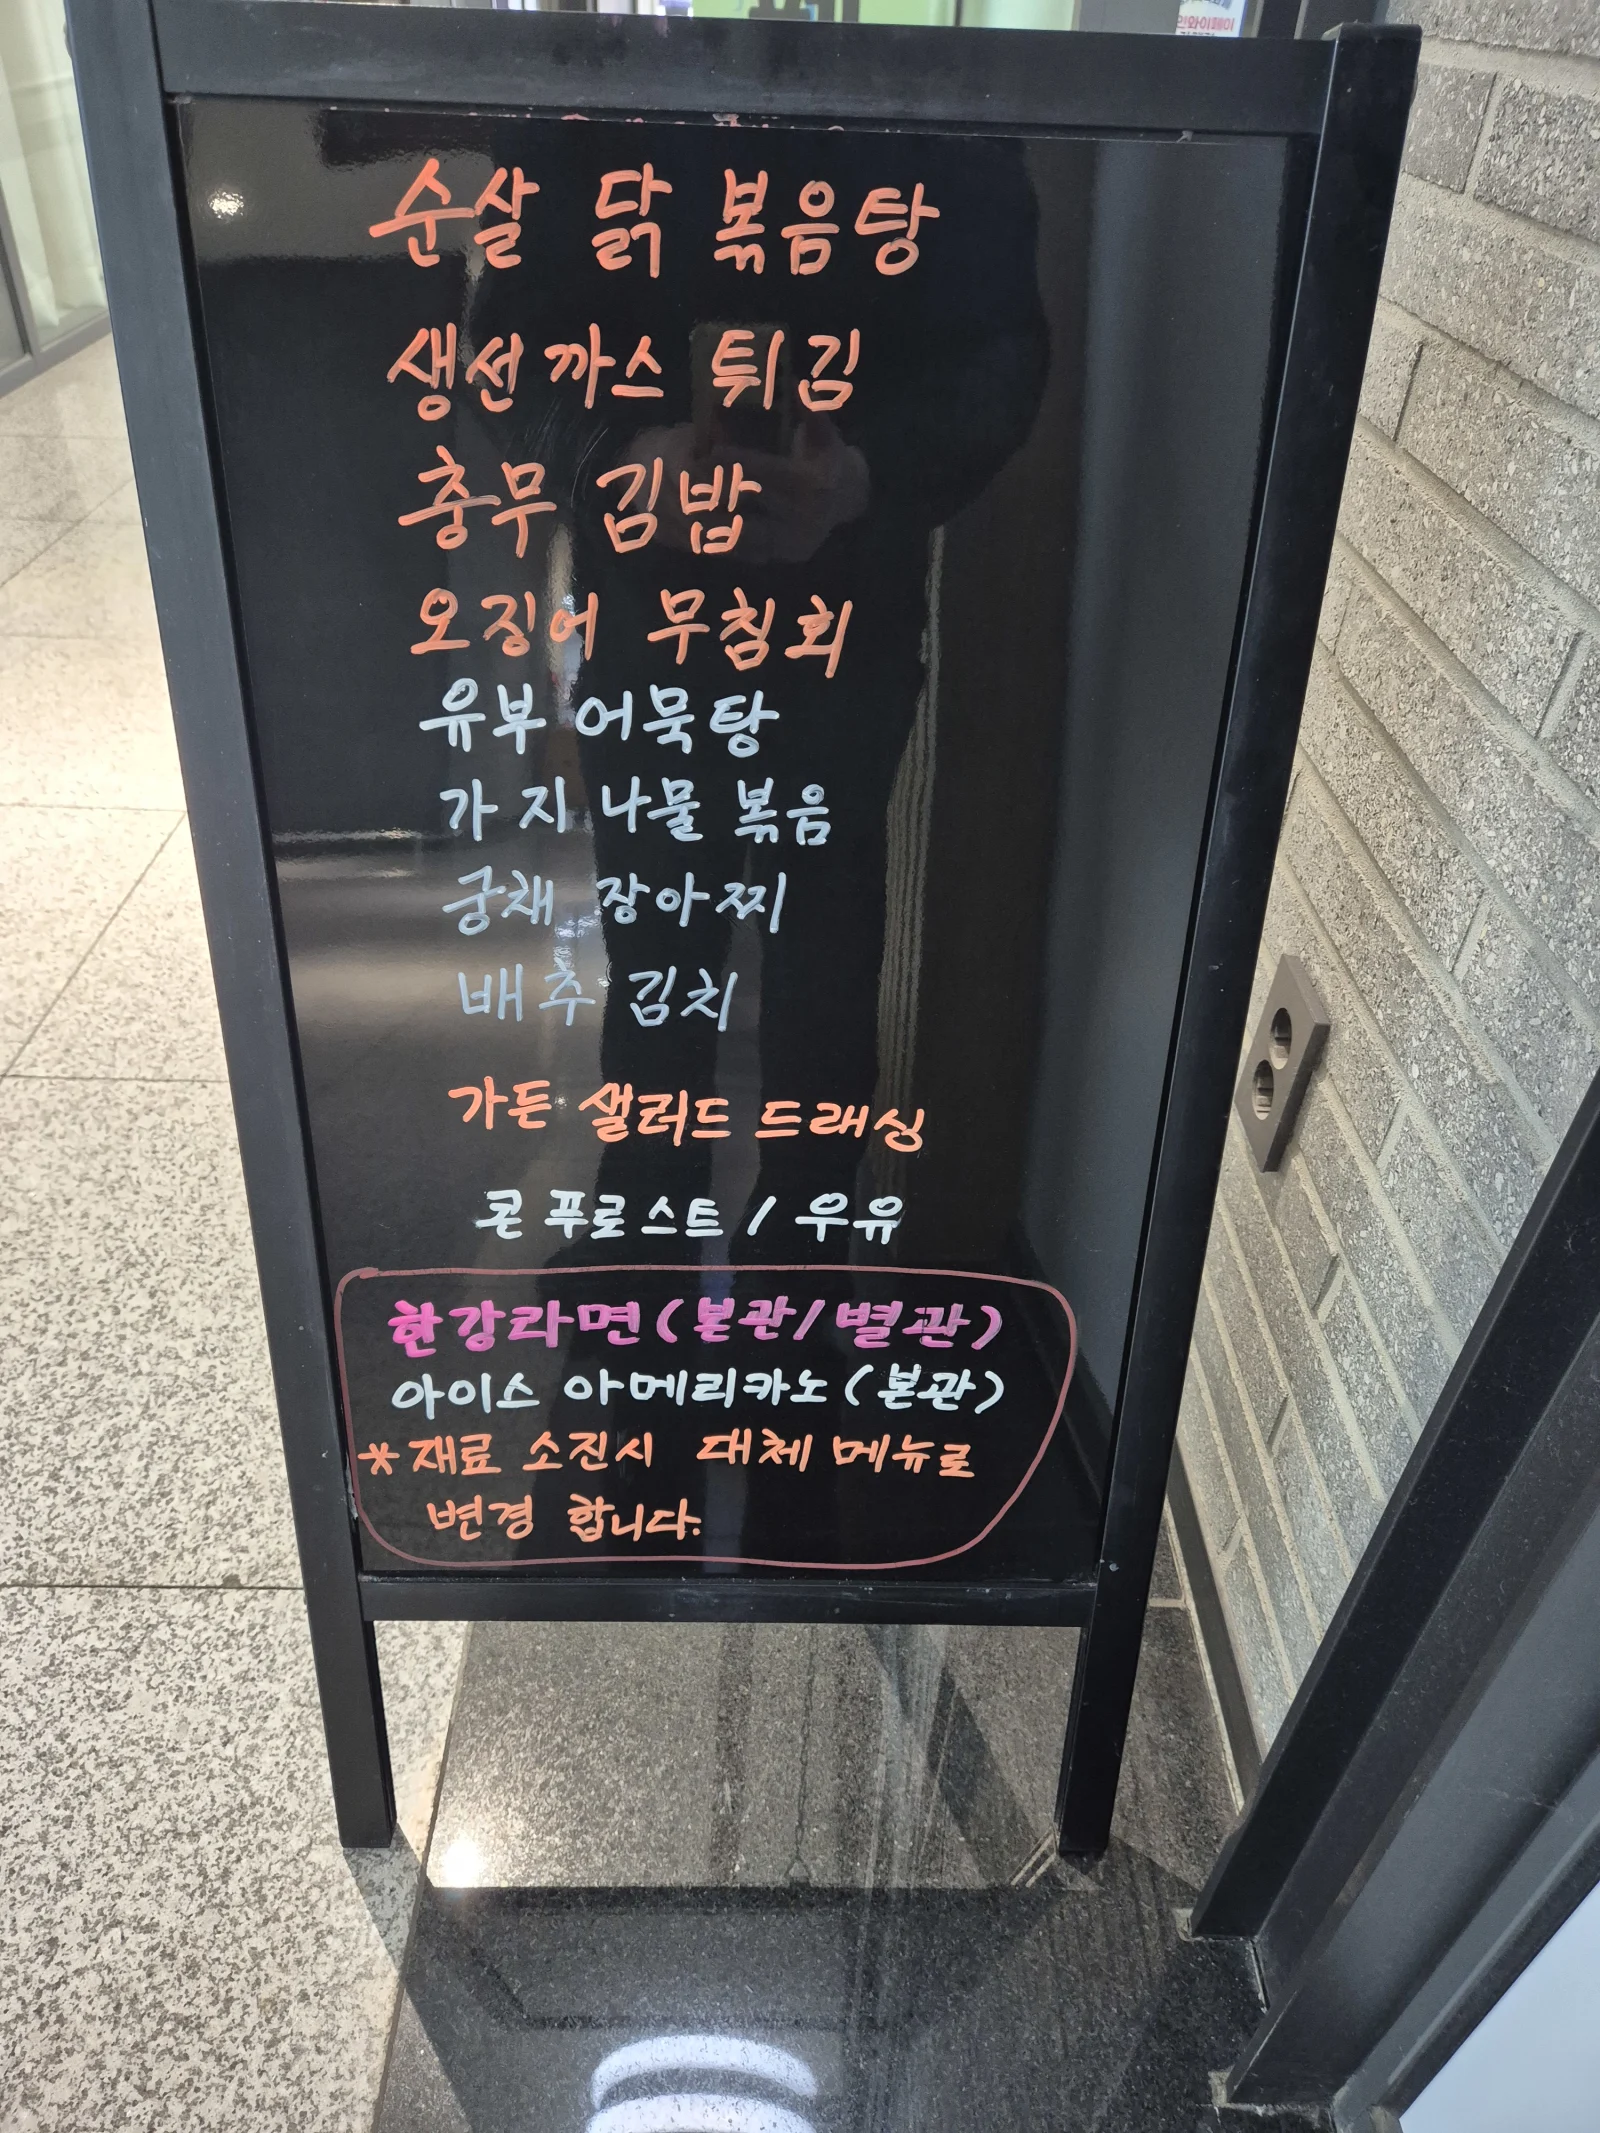 순살 닭 볶음탕
생선까스 튀김
충무 김밥
오징어 무침회
유부 어묵탕
가지 나물 볶음
궁채 장아찌
배추 김치
가든 샐러드 드래싱
콘푸로스트 / 우유
한강라면(본관/별관)
아이스 아메리카노(본관)
*재료 소진시 대체 메뉴로
변경 합니다.